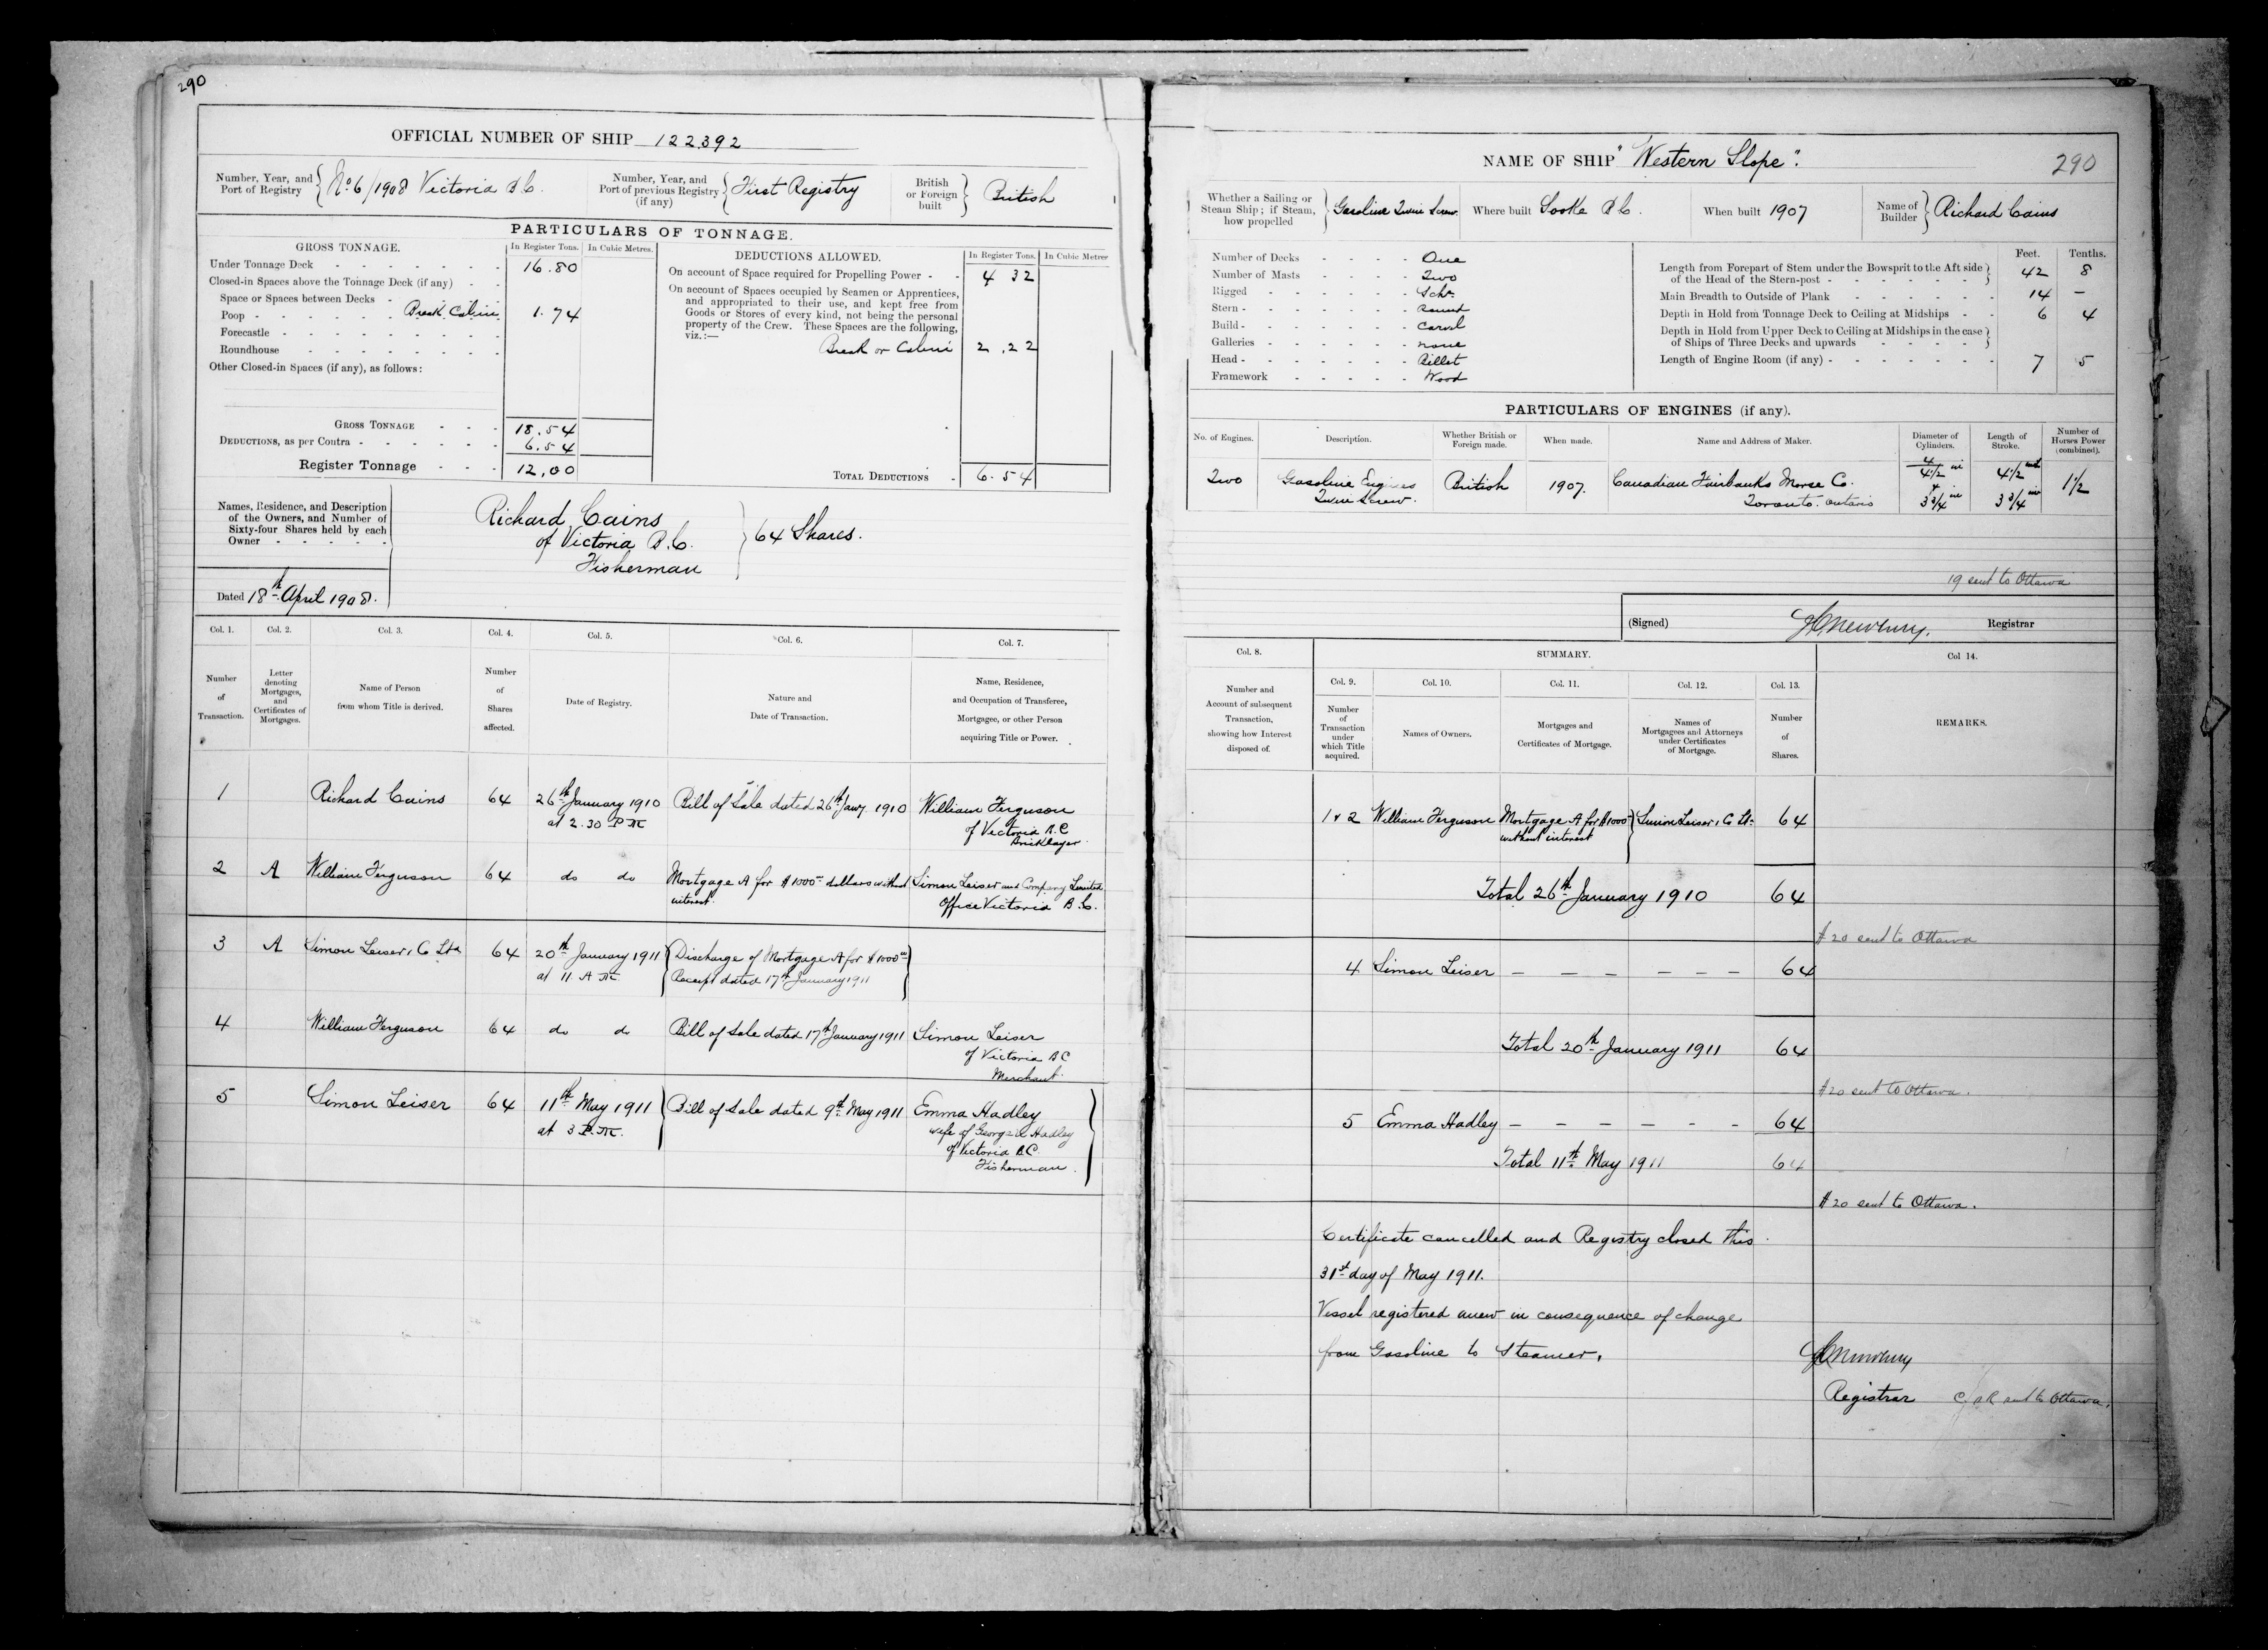 290
OFFICIAL NUMBER OF SHIP 122392
Number, Year, and Port of Registry No 6/1908 Victoria B.C.
Number, Year, and Port of previous Registry (if any) First Registry
British or Foreign built British
PARTICULARS OF TONNAGE.
GROSS TONNAGE. In Register Tons. In Cubic Metres.
Under Tonnage Deck 16.80
Closed-in Spaces above the Tonnage Deck (if any)
Space or Spaces between Decks
Poop Break Cabin 1.74
Forecastle
Roundhouse
Other Closed-in Spaces (if any), as follows:
GROSS TONNAGE 18.54
DEDUCTIONS, as per Contra 6.54
Register Tonnage 12.00
DEDUCTIONS ALLOWED. In Register Tons. In Cubic Metres
On account of Space required for Propelling Power 4 32
On account of Spaces occupied by Seamen or Apprentices,
and appropriated to their use, and kept free from
Goods or Stores of every kind, not being the personal
property of the Crew. These Spaces are the following,
viz.:—
Break or Cabin 2.22
TOTAL DEDUCTIONS 6.54
Names, Residence, and Description
of the Owners, and Number of
Sixty-four Shares held by each
Owner
Richard Cains
of Victoria B.C.
Fisherman
64 Shares.
Dated 18th April 1908.
Col. 1. Col. 2. Col. 3. Col. 4. Col. 5. Col. 6. Col. 7.
Number of Transaction.
Letter denoting Mortgages, and Certificates of Mortgages.
Name of Person from whom Title is derived.
Number of Shares affected.
Date of Registry.
Nature and Date of Transaction.
Name, Residence, and Occupation of Transferee, Mortgagee, or other Person acquiring Title or Power.
1 Richard Cains 64 26th January 1910 Bill of Sale dated 26th Jany. 1910 William Ferguson
at 2.30 P.M. of Victoria B.C
Bricklayer
2 A William Ferguson 64 do do Mortgage A for $1000 dollars without Simon Leiser and Company Limited
interest. Office Victoria B.C.
3 A Simon Leiser & Co Ltd 64 20th January 1911 Discharge of Mortgage A for $1000
at 11 A M Receipt dated 17th January 1911
4 William Ferguson 64 do do Bill of Sale dated 17th January 1911 Simon Leiser
of Victoria BC
Merchant
5 Simon Leiser 64 11th May 1911 Bill of Sale dated 9th May 1911 Emma Hadley
at 3 P.M. wife of George Hadley
of Victoria B.C.
Fisherman
NAME OF SHIP "Western Slope".
290
Whether a Sailing or Steam Ship; if Steam, how propelled Gasoline Twin Screw.
Where built Sooke B.C.
When built 1907
Name of Builder Richard Cains
Number of Decks One
Number of Masts Two
Rigged Schr
Stern Round
Build Carvel
Galleries none
Head Billet
Framework Wood
Feet. Tenths.
Length from Forepart of Stem under the Bowsprit to the Aft side
of the Head of the Stern-post 42 8
Main Breadth to Outside of Plank 14 —
Depth in Hold from Tonnage Deck to Ceiling at Midships 6 4
Depth in Hold from Upper Deck to Ceiling at Midships in the case
of Ships of Three Decks and upwards
Length of Engine Room (if any) 7 5
PARTICULARS OF ENGINES (if any).
No. of Engines. Description. Whether British or Foreign made. When made. Name and Address of Maker. Diameter of Cylinders. Length of Stroke. Number of Horses Power (combined).
Two Gasoline Engines British 1907. Canadian Fairbanks Morse Co. 4 1/2 in 4 1/2 1 1/2
Twin Screw. Toronto. Ontario 3 3/4 in 3 3/4 in
19 sent to Ottawa
(Signed) Newbury. Registrar
Col. 8. SUMMARY. Col 14.
Number and Account of subsequent Transaction, showing how Interest disposed of.
Col. 9. Col. 10. Col. 11. Col. 12. Col. 13.
Number of Transaction under which Title acquired.
Names of Owners.
Mortgages and Certificates of Mortgage.
Names of Mortgagees and Attorneys under Certificates of Mortgage.
Number of Shares.
REMARKS.
1 & 2 William Ferguson Mortgage A for $1000 Simon Leiser & Co Lt 64
without interest
Total 26th January 1910 64
# 20 sent to Ottawa
4 Simon Leiser — — — — — — 64
Total 20th January 1911 64
# 20 sent to Ottawa.
5 Emma Hadley — — — — — — 64
Total 11th May 1911 64
# 20 sent to Ottawa.
Certificate cancelled and Registry closed this
31st day of May 1911.
Vessel registered anew in consequence of change
from Gasoline to Steamer.
Newbury
Registrar
sent to Ottawa.